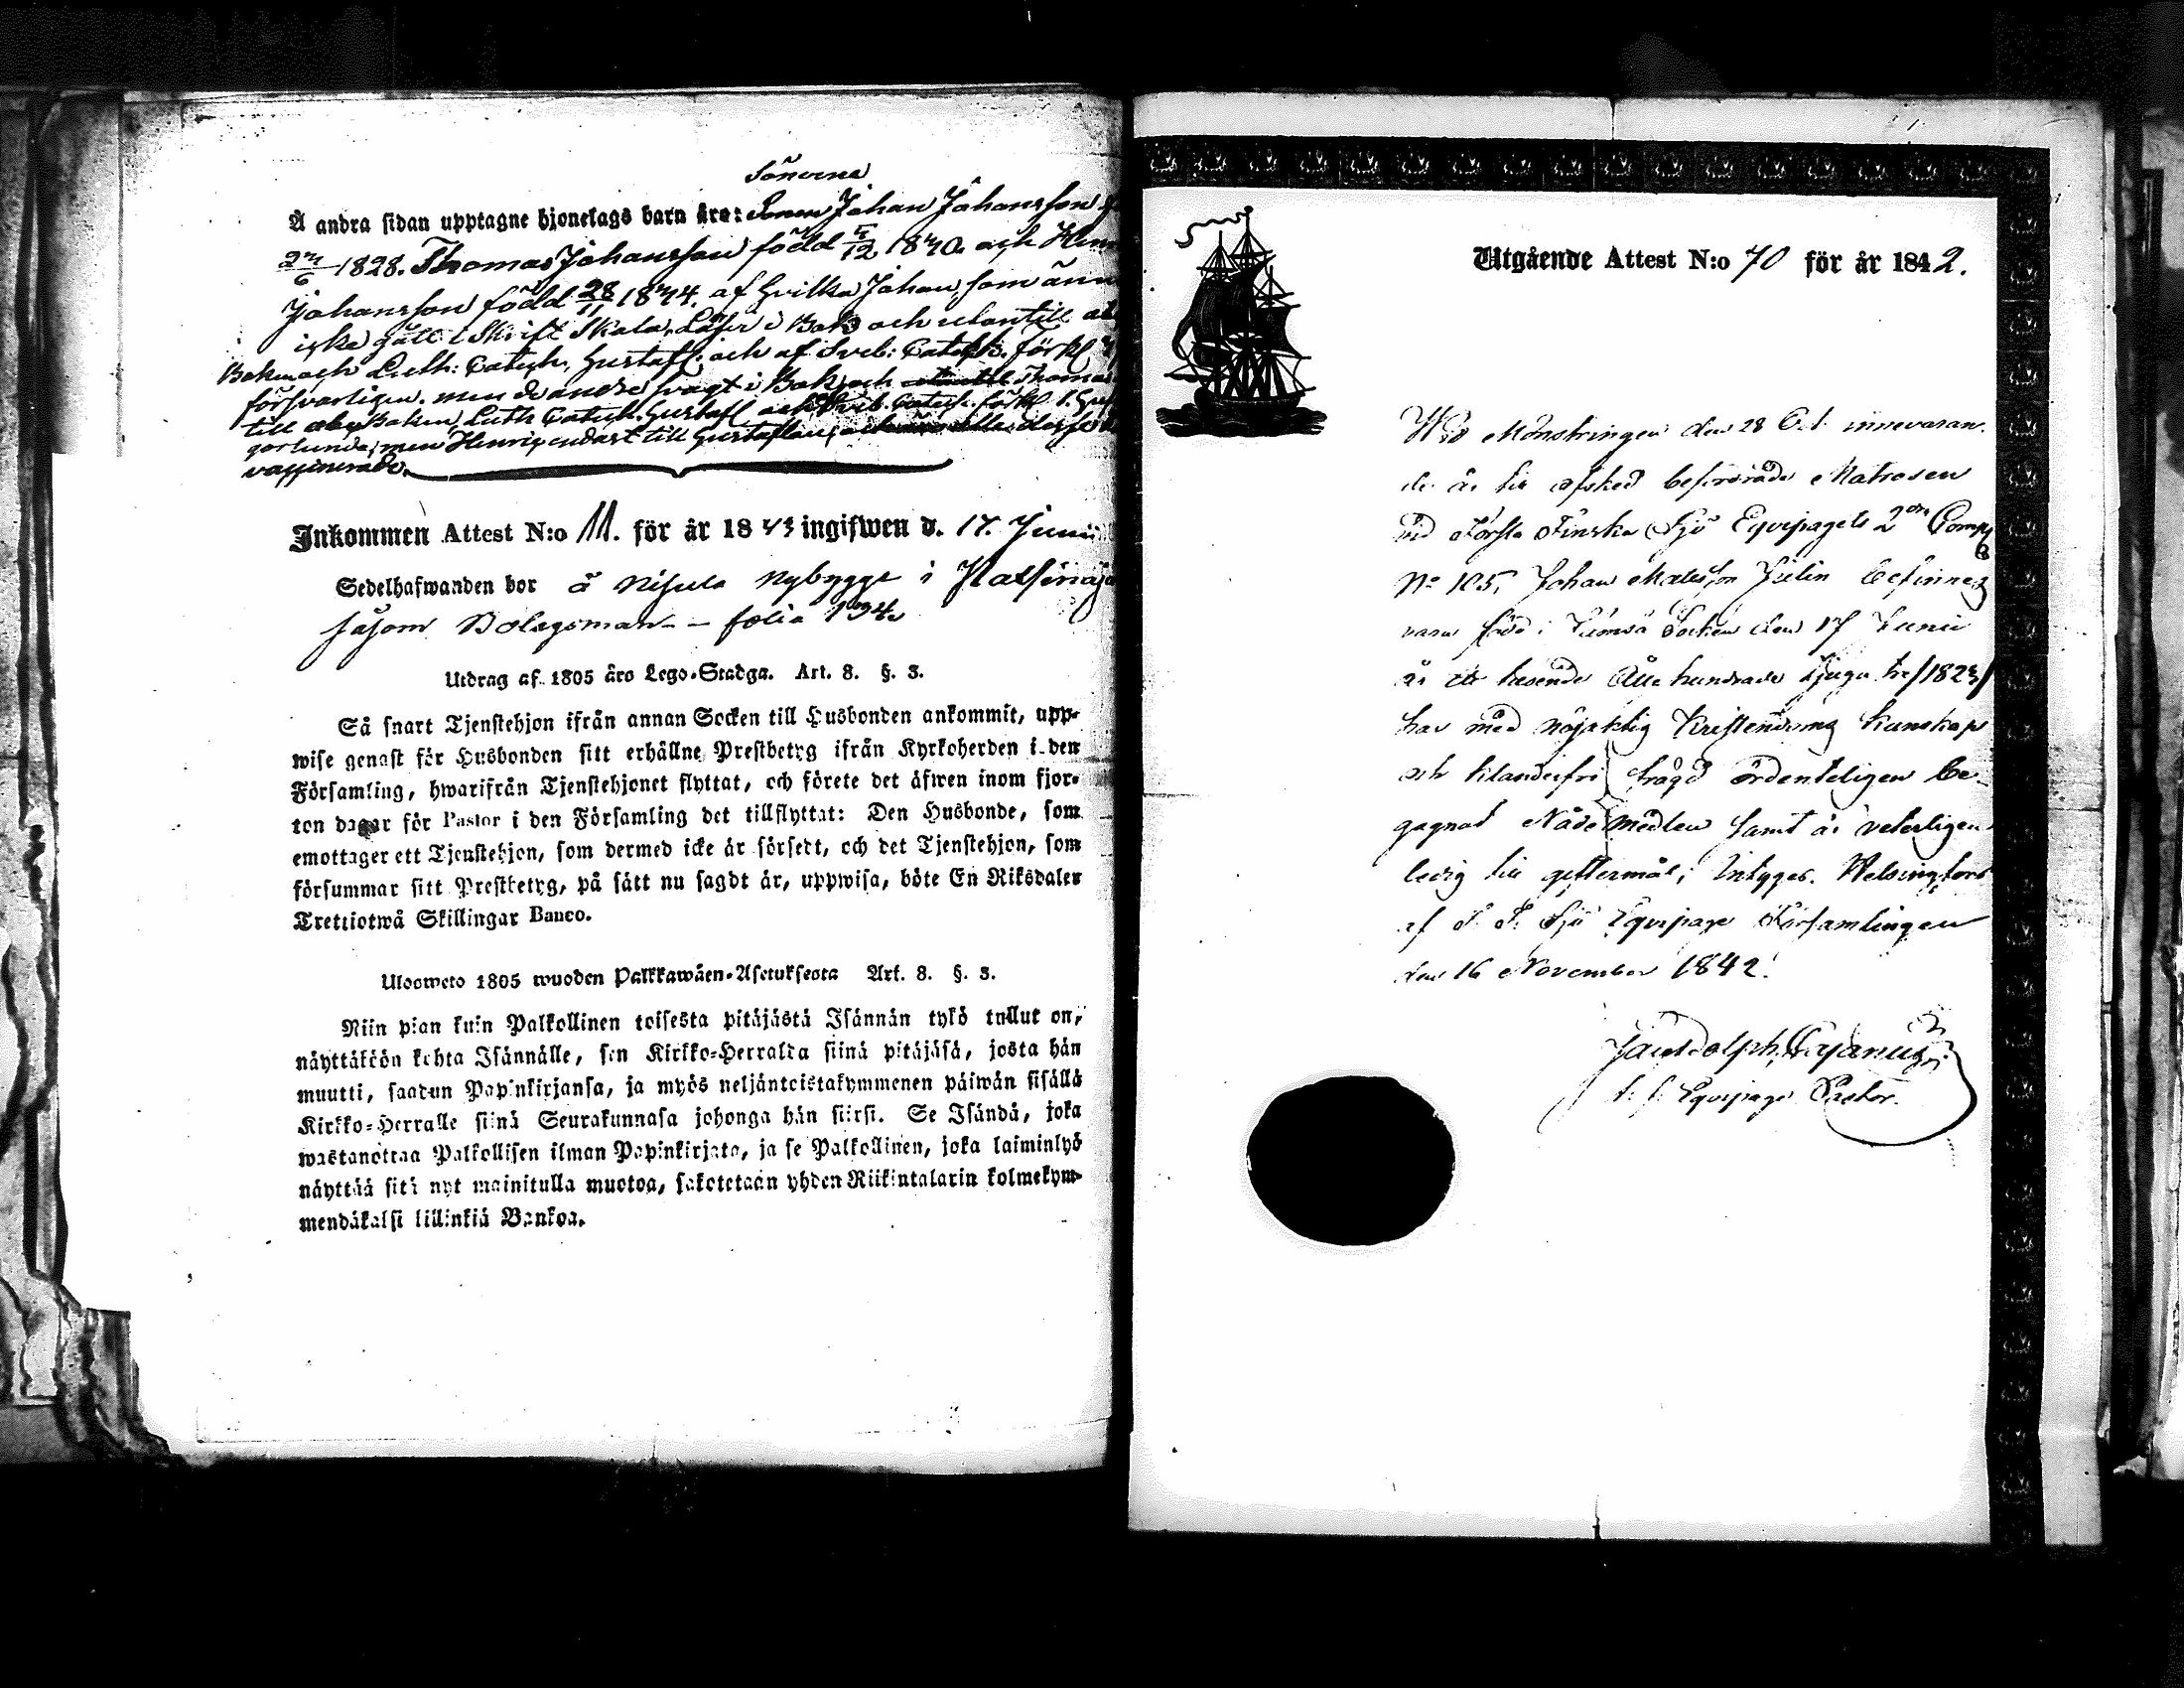 Sönerna
Å andra sidan upptagne hjonelags barn äro: Johan Johansson
1828. Thomas Johansson född 5/12 1840. och Hen
Johansson född 28/11 1844. af hvilka Johan, som änn
icke gått i Skrift Skola, Läser i Bok och utantill ab
Boken och Luth: Catech. Gustafl. och af Sveb: Catech. förkl.
försvarligen. men de andre svagt i Bok och Thomas
till aby Boken, Luth Catech. Gustafl och Sveb. Catech. förkl.
men Henric endast till Gustaflan,
vaccinerade.
Inkommen Attest N:o 11. för år 1843 ingifwen d. 17. Junii
Sedelhafwanden bor å Nisula Nybygge i
såsom Bolagsman — folio 194.
Utdrag af 1805 års Lego-Stadga. Art. 8. §. 3.
Så snart Tjenstehjon ifrån annan Socken till Husbonden ankommit, upp-
wise genast för Husbonden sitt erhållne Prestbetyg ifrån Kyrkoherden i den
Församling, hwarifrån Tjenstehjonet flyttat, och förete det äfwen inom fjor-
ton dagar för Pastor i den Församling det tillflyttat: Den Husbonde, som
emottager ett Tjenstehjon, som dermed icke är försedt, och det Tjenstehjon, som
försummar sitt Prestbetyg, på sätt nu sagdt är, uppwisa, böte En Riksdaler
Trettiotwå Skillingar Banco.
Ulosweto 1805 wuoden Palkkawäen-Asetuksesta Art. 8. §. 3.
Niin pian kuin Palkollinen toisesta pitäjästä Isännän tykö tullut on,
näyttäköön kohta Isännälle, sen Kirkko-Herralta siinä pitäjäsä, josta hän
muutti, saadun Papinkirjansa, ja myös neljäntoistakymmenen päiwän sisällä
Kirkko-Herralle siinä Seurakunnasa johonga hän siirsi. Se Isändä, joka
wastanottaa Palkollisen ilman Papinkirjata, ja se Palkollinen, joka laiminlyö
näyttää sitä nyt mainitulla muotoa, sakotetaan yhden Riikintalarin kolmekym-
mendäkaksi killinkiä Bankoa.
Utgående Attest N:o 70 för år 1842.
Wid Mönstringen den 28 Oct. innevaran-
de år till afsked befordrade Matrosen
vid Första Finska Sjö Equipagets 2dra Comp
No 105, Johan Matsson Julin befinnes
vara född i Kumo Socken den 17 Junii
år ett tusende Åtta hundrade tjugu tre/1823/
har med nöjaktig Kristendoms kunskap
och klanderfri frägd ordenteligen be-
gagnat Nådemedlen samt är veterligen
ledig till gittermål; Intygas. Helsingfors
af F. F. Sjö Equipage Församlingen
den 16 November 1842.
Adolph Cajanus
Equipage Pastor.